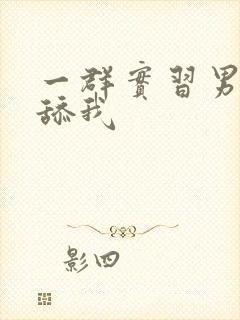 一群實習男
舔我
影四